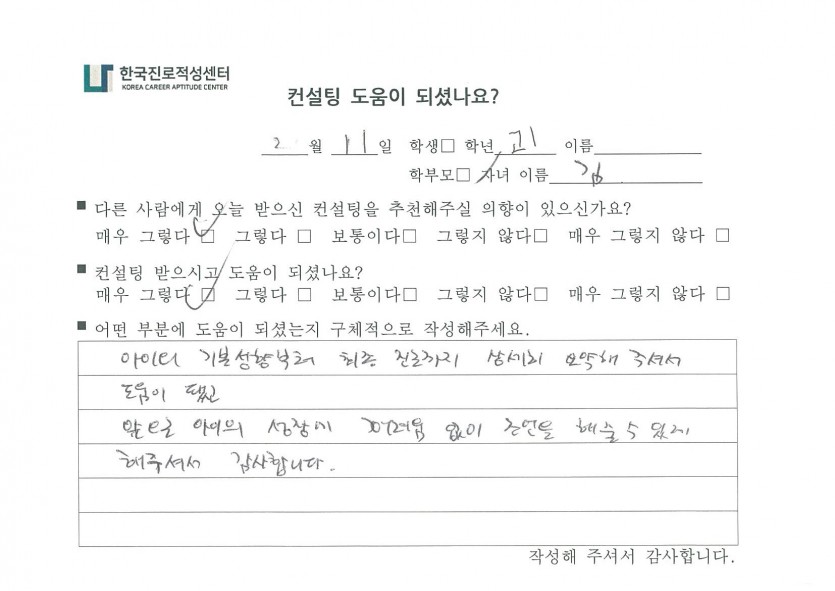 한국진로적성센터
KOREA CAREER APTITUDE CENTER
컨설팅 도움이 되셨나요?
2 월 11 일 학생□ 학년 고1 이름
학부모□ 자녀 이름 김
■ 다른 사람에게 오늘 받으신 컨설팅을 추천해주실 의향이 있으신가요?
매우 그렇다 ☑ 그렇다 □ 보통이다□ 그렇지 않다□ 매우 그렇지 않다 □
■ 컨설팅 받으시고 도움이 되셨나요?
매우 그렇다 ☑ 그렇다 □ 보통이다□ 그렇지 않다□ 매우 그렇지 않다 □
■ 어떤 부분에 도움이 되셨는지 구체적으로 작성해주세요.
아이의 기본성향부터 최종 진로까지 상세히 요약해 주셔서
도움이 됐고
앞으로 아이의 성장에 어려움 없이 조언을 해줄 수 있게
해주셔서 감사합니다.
작성해 주셔서 감사합니다.